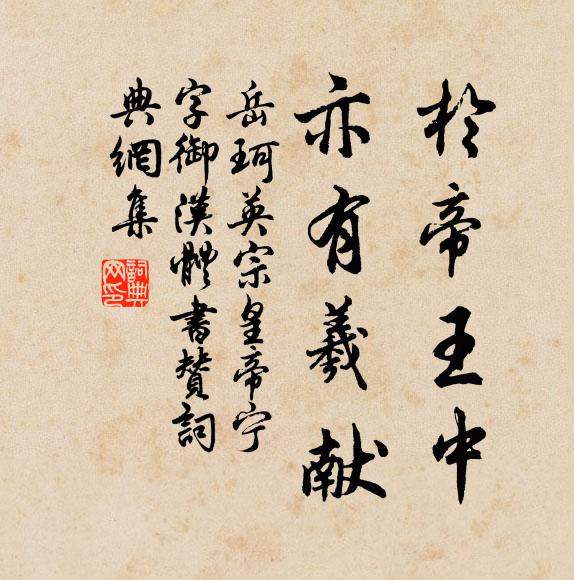 於帝王中
亦有羲献
岳珂英宗皇帝宁
字御漢體書贊詞
典網集
詞典
网印